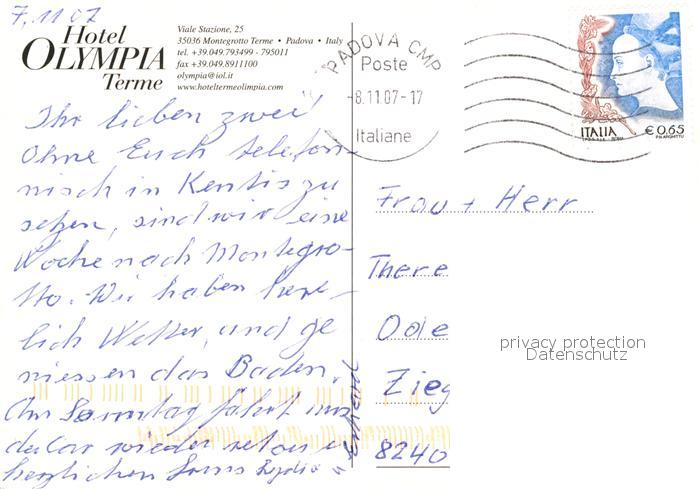 7.11 07
Hotel
OLYMPIA
Terme
Viale Stazione, 25
35036 Montegrotto Terme • Padova • Italy
tel. +39.049.793499 - 795011
fax +39.049.8911100
olympia@iol.it
www.hoteltermeolimpia.com
PADOVA CMP
Poste
-8.11.07-17
Italiane
ITALIA
€ 0,65
Ihr lieben zwei!
Ohne Euch telefon-
nisch in Kentis zu
setzen, sind wir eine
Woche nach Montegro-
tto. Wir haben herr-
lich Wetter, und ge
niessen das Baden.
Am Sonntag fährt uns
da Car wieder retour
herzlichen Gruss Lydia
u Erhard
Frau + Herr
There
Ode
Zieg
8240
privacy protection
Datenschutz